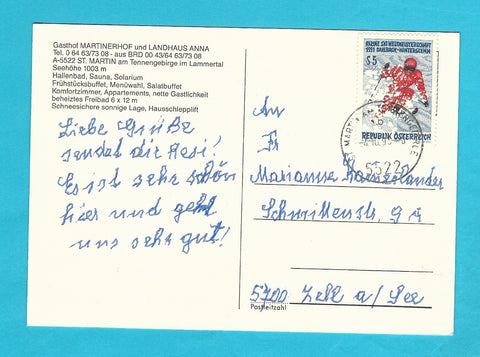 Gasthof MARTINERHOF und LANDHAUS ANNA
Tel. 0 64 63/73 08 - aus BRD 00 43/64 63/73 08
A-5522 ST. MARTIN am Tennengebirge im Lammertal
Seehöhe 1003 m
Hallenbad, Sauna, Solarium
Frühstücksbuffet, Menüwahl, Salatbuffet
Komfortzimmer, Appartements, nette Gastlichkeit
beheiztes Freibad 6 x 12 m
Schneesichere sonnige Lage, Hausschlepplift
Liebe Grüße
sendet die Resi!
Es ist sehr schön
hier und geht
uns sehr gut!
S 5
REPUBLIK ÖSTERREICH
ST. MARTIN AM
5522
An
Fr
Marianne
Schmittenstr. 9
5700 Zell a/See
Postleitzahl